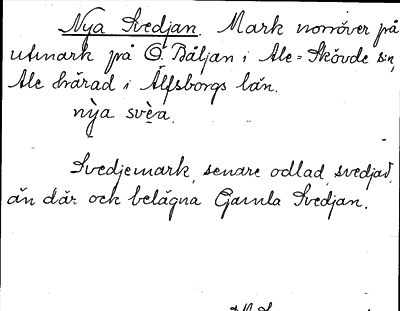 Nya Svedjan. Mark norröver på
utmark på Ö. Båljan i Ale-Skövde s:n,
Ale härad i Älfsborgs län.
nỳa svèa.
Svedjemark, senare odlad, svedjad,
än där och belägna Gamla Svedjan.